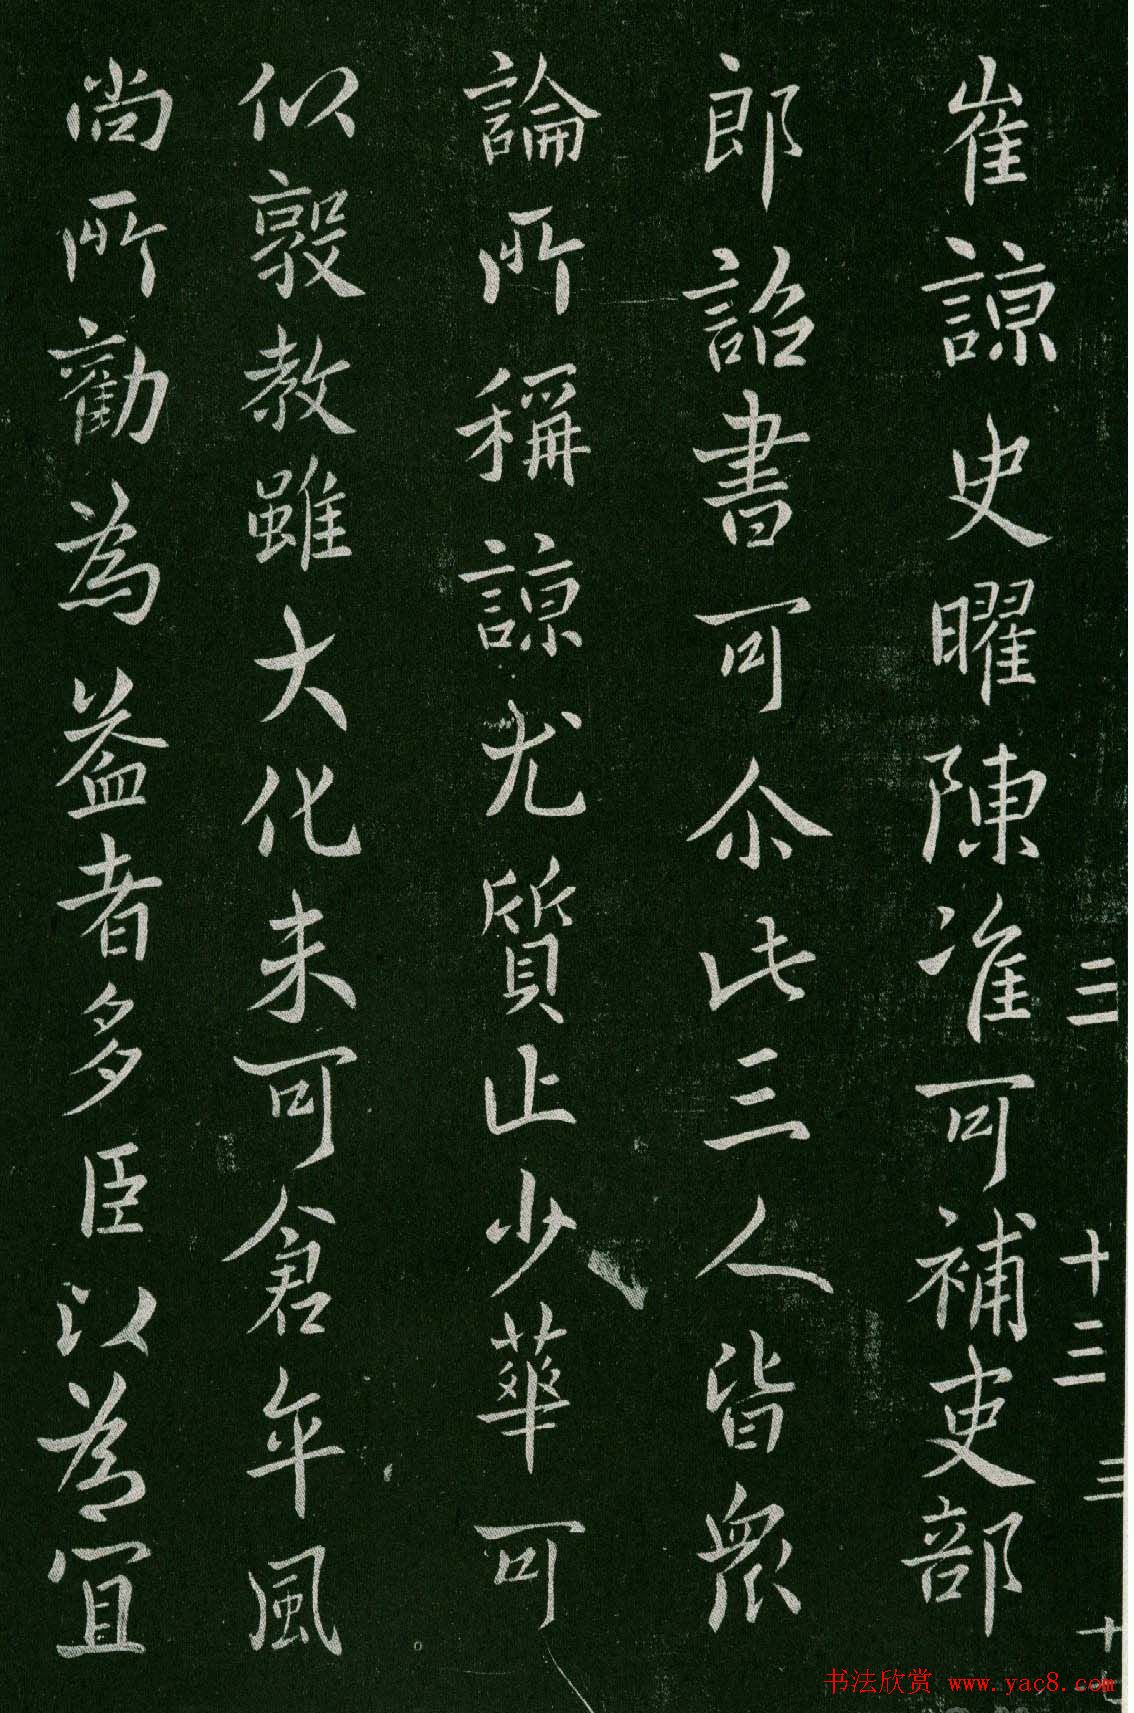 崔諒史曜陳准可補吏部
郎詔書可尒此三人皆衆
論所稱諒尤質止少華可
以敦教雖大化未可倉卒風
尚所勸為益者多臣以為宜
二二
十三二
三
十七
书法欣赏 www.yac8.com